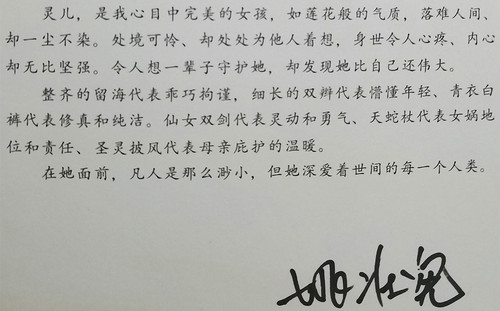 灵儿，是我心目中完美的女孩，如莲花般的气质，落难人间、
却一尘不染。处境可怜、却处处为他人着想，身世令人心疼、内心
却无比坚强。令人想一辈子守护她，却发现她比自己还伟大。
整齐的留海代表乖巧拘谨，细长的双辫代表懵懂年轻、青衣白
裤代表修真和纯洁。仙女双剑代表灵动和勇气、天蛇杖代表女娲地
位和责任、圣灵披风代表母亲庇护的温暖。
在她面前，凡人是那么渺小，但她深爱着世间的每一个人类。
姚壮宪